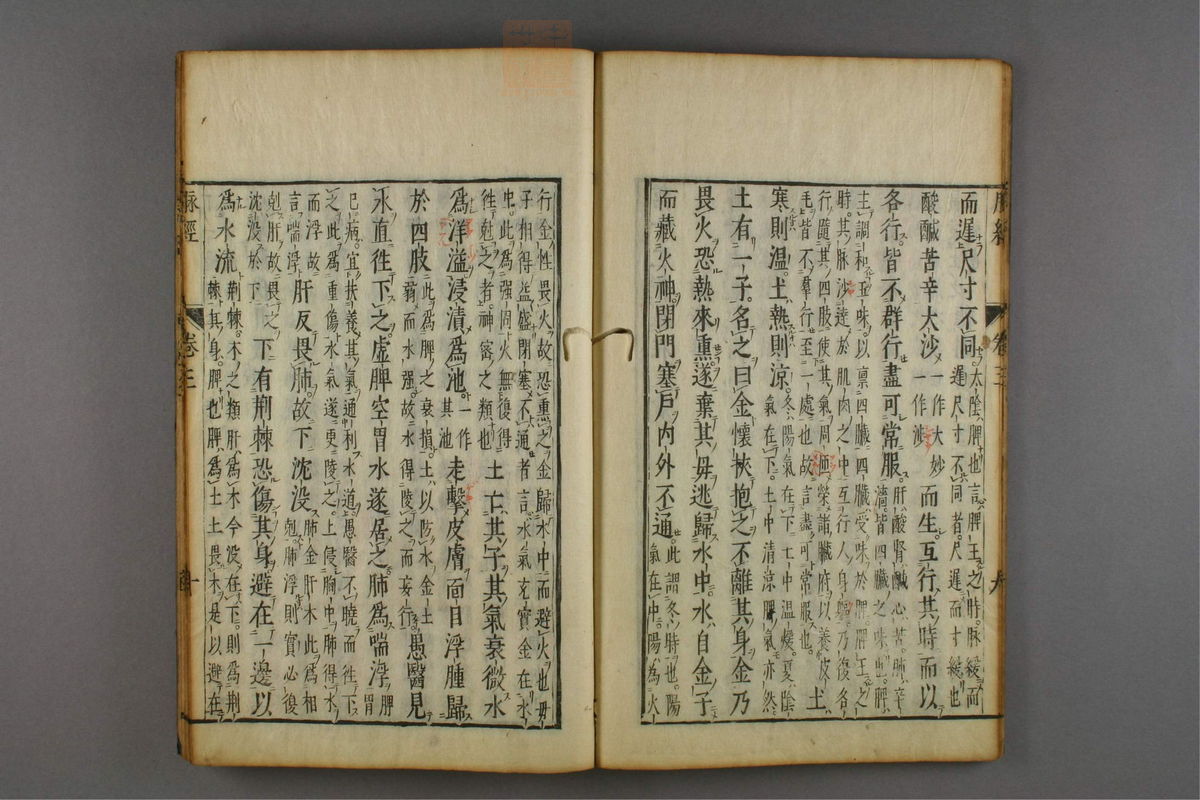 而遲尺寸不同太陰脾也言脾王之時脉緩而
遲尺寸不同者尺遲而寸緩也
酸鹹苦辛太沙一作大妙
一作涉
而生互行其時而以
各行皆不群行盡可常服肝酸腎鹹心苦肺辛
濇皆四臟之味也脾
主調和五味以禀四臟四臟受味於脾脾王之
時其脉沙達於肌肉之中互行人身軀乃復各
行隨其四肢使其氣周極榮諸臟府以養皮
毛皆不羣行至一處也故言盡可常服也
土
寒則温土熱則涼冬陽氣在下土中温煖夏陰
氣在下土中清涼脾氣亦然
土有一子名之曰金懷挾抱之不離其身金乃
畏火恐熱來熏遂棄其毋逃歸水中水自金子
而藏火神閉門塞戶内外不通此謂冬時也陽
氣在中陽為火
脉經
卷三
行金性畏火故恐熏之金歸水中而避火也毋
子相得益盛閉塞不通者言水氣充實金在水
中此為強固火無復得
徃剋之者神密之類也
土亡其子其氣衰微水
為洋溢浸漬為池一作
其池
走擊皮膚面目浮腫歸
於四肢此為脾之衰損土以防水金土
弱而水強故水得陵之而妄行
愚醫見
水直徃下之虛脾空胃水遂居之肺為喘浮脾
胃
已病宜扶養其氣通利水道愚醫不曉而徃下
之此為重傷水氣遂更陵之上侵胸中肺得水
而浮故
言喘浮
肝反畏肺故下沈没肺金肝木此為相
剋肺浮則實必復
剋肝故畏之
沈没於下
下有荆棘恐傷其身避在一邊以
為水流荆棘木之類肝為木今没在下則為荆
棘其身脾也脾為土土畏木是以避在
脉經
卷三